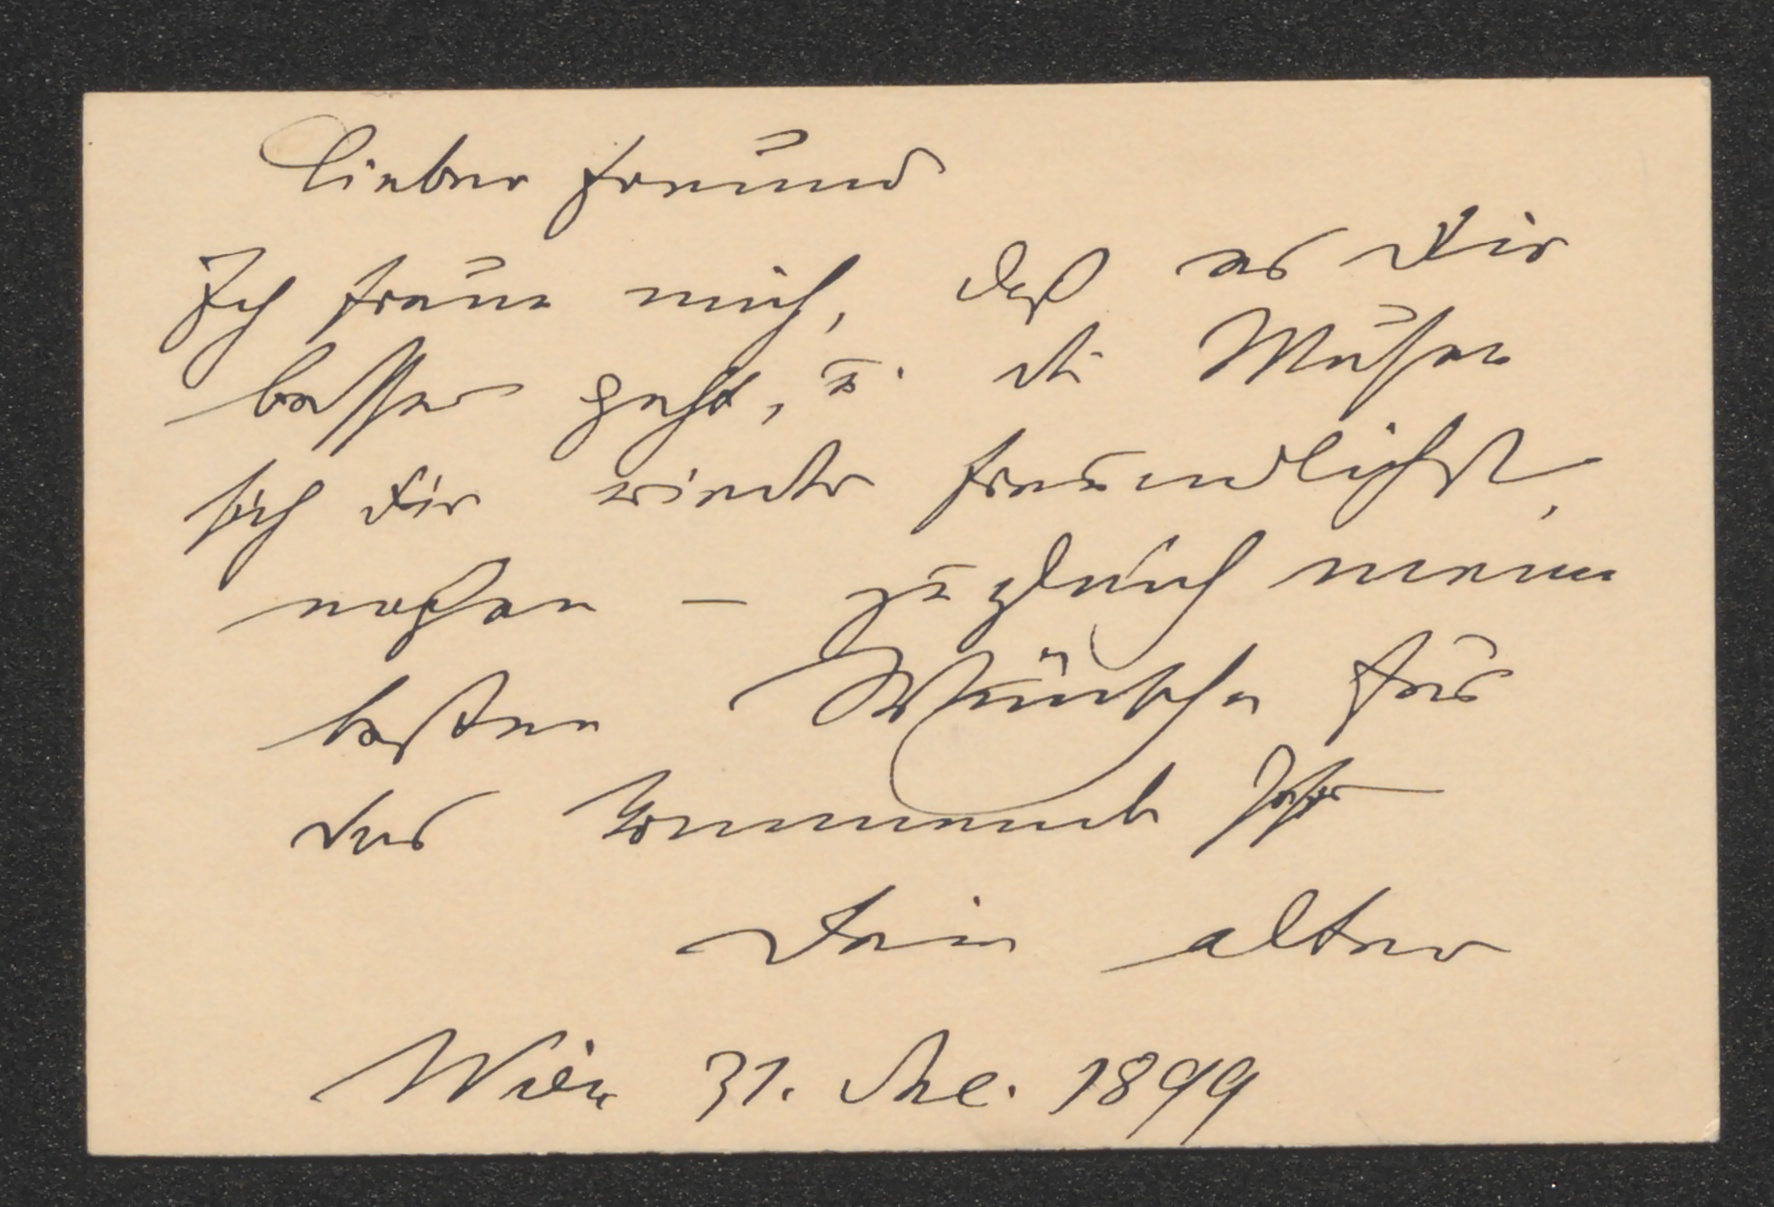 Lieber Freund
Ich freue mich, daß es Dir
besser geht, u. die Musen
sich Dir wieder freundlichst
nahen — zugleich meine
besten Wünsche fürs
das kommende Jahr
Dein alter
Wien 31. Dec. 1899